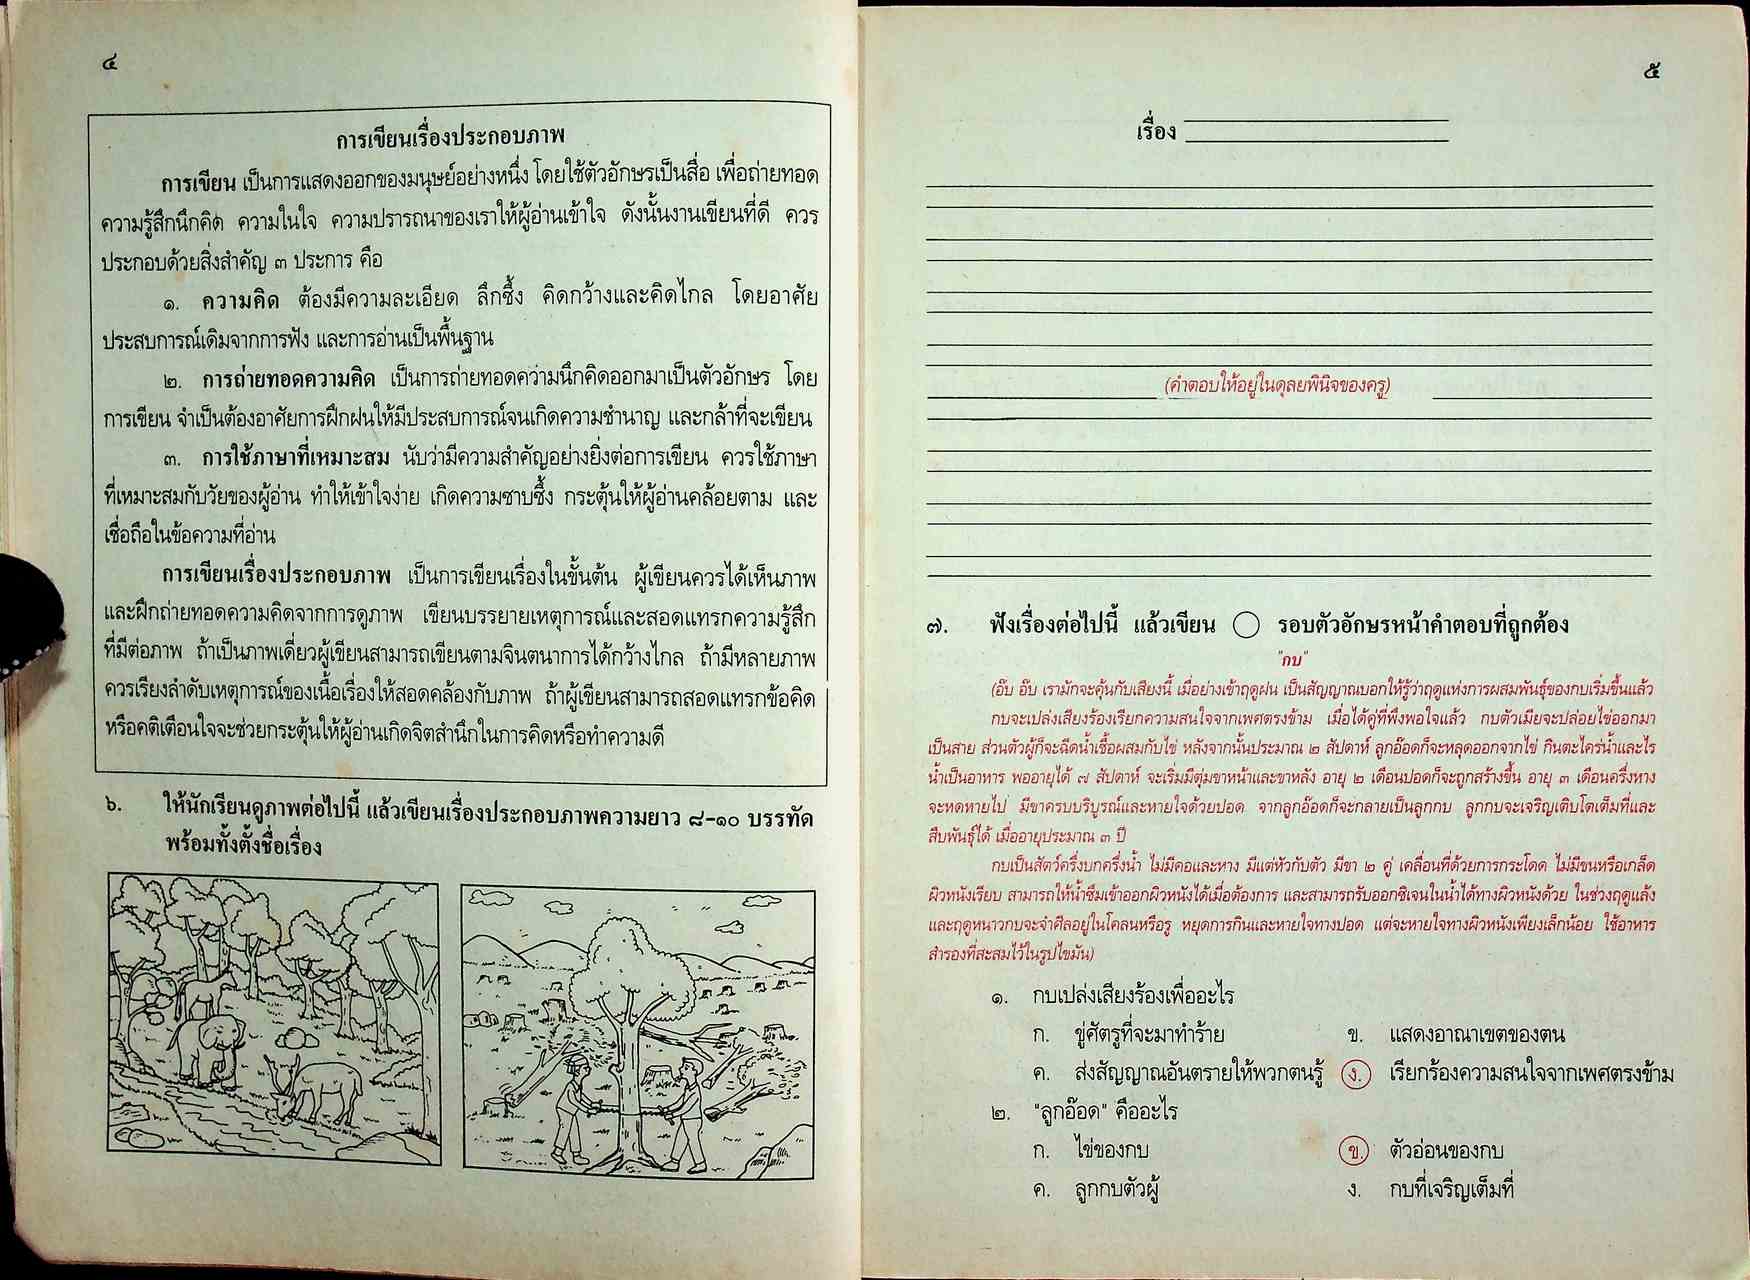 ๔
การเขียนเรื่องประกอบภาพ
การเขียน เป็นการแสดงออกของมนุษย์อย่างหนึ่ง โดยใช้ตัวอักษรเป็นสื่อ เพื่อถ่ายทอด
ความรู้สึกนึกคิด ความในใจ ความปรารถนาของเราให้ผู้อ่านเข้าใจ ดังนั้นงานเขียนที่ดี ควร
ประกอบด้วยสิ่งสำคัญ ๓ ประการ คือ
๑. ความคิด ต้องมีความละเอียด ลึกซึ้ง คิดกว้างและคิดไกล โดยอาศัย
ประสบการณ์เดิมจากการฟัง และการอ่านเป็นพื้นฐาน
๒. การถ่ายทอดความคิด เป็นการถ่ายทอดความนึกคิดออกมาเป็นตัวอักษร โดย
การเขียน จำเป็นต้องอาศัยการฝึกฝนให้มีประสบการณ์จนเกิดความชำนาญ และกล้าที่จะเขียน
๓. การใช้ภาษาที่เหมาะสม นับว่ามีความสำคัญอย่างยิ่งต่อการเขียน ควรใช้ภาษา
ที่เหมาะสมกับวัยของผู้อ่าน ทำให้เข้าใจง่าย เกิดความซาบซึ้ง กระตุ้นให้ผู้อ่านคล้อยตาม และ
เชื่อถือในข้อความที่อ่าน
การเขียนเรื่องประกอบภาพ เป็นการเขียนเรื่องในขั้นต้น ผู้เขียนควรได้เห็นภาพ
และฝึกถ่ายทอดความคิดจากการดูภาพ เขียนบรรยายเหตุการณ์และสอดแทรกความรู้สึก
ที่มีต่อภาพ ถ้าเป็นภาพเดี่ยวผู้เขียนสามารถเขียนตามจินตนาการได้กว้างไกล ถ้ามีหลายภาพ
ควรเรียงลำดับเหตุการณ์ของเนื้อเรื่องให้สอดคล้องกับภาพ ถ้าผู้เขียนสามารถสอดแทรกข้อคิด
หรือคติเตือนใจจะช่วยกระตุ้นให้ผู้อ่านเกิดจิตสำนึกในการคิดหรือทำความดี
๖. ให้นักเรียนดูภาพต่อไปนี้ แล้วเขียนเรื่องประกอบภาพความยาว ๘-๑๐ บรรทัด
พร้อมทั้งตั้งชื่อเรื่อง
๕
เรื่อง
(คำตอบให้อยู่ในดุลยพินิจของครู)
๗. ฟังเรื่องต่อไปนี้ แล้วเขียน ◯ รอบตัวอักษรหน้าคำตอบที่ถูกต้อง
"กบ"
(อ๊บ อ๊บ เรามักจะคุ้นกับเสียงนี้ เมื่อย่างเข้าฤดูฝน เป็นสัญญาณบอกให้รู้ว่าฤดูแห่งการผสมพันธุ์ของกบเริ่มขึ้นแล้ว
กบจะเปล่งเสียงร้องเรียกความสนใจจากเพศตรงข้าม เมื่อได้คู่ที่พึงพอใจแล้ว กบตัวเมียจะปล่อยไข่ออกมา
เป็นสาย ส่วนตัวผู้ก็จะฉีดน้ำเชื้อผสมกับไข่ หลังจากนั้นประมาณ ๒ สัปดาห์ ลูกอ๊อดก็จะหลุดออกจากไข่ กินตะไคร่น้ำและไร
น้ำเป็นอาหาร พออายุได้ ๗ สัปดาห์ จะเริ่มมีตุ่มขาหน้าและขาหลัง อายุ ๒ เดือนปอดก็จะถูกสร้างขึ้น อายุ ๓ เดือนครึ่งหาง
จะหดหายไป มีขาครบบริบูรณ์และหายใจด้วยปอด จากลูกอ๊อดก็จะกลายเป็นลูกกบ ลูกกบจะเจริญเติบโตเต็มที่และ
สืบพันธุ์ได้ เมื่ออายุประมาณ ๓ ปี
กบเป็นสัตว์ครึ่งบกครึ่งน้ำ ไม่มีคอและหาง มีแต่หัวกับตัว มีขา ๒ คู่ เคลื่อนที่ด้วยการกระโดด ไม่มีขนหรือเกล็ด
ผิวหนังเรียบ สามารถให้น้ำซึมเข้าออกผิวหนังได้เมื่อต้องการ และสามารถรับออกซิเจนในน้ำได้ทางผิวหนังด้วย ในช่วงฤดูแล้ง
และฤดูหนาวกบจะจำศีลอยู่ในโคลนหรือรู หยุดการกินและหายใจทางปอด แต่จะหายใจทางผิวหนังเพียงเล็กน้อย ใช้อาหาร
สำรองที่สะสมไว้ในรูปไขมัน)
๑. กบเปล่งเสียงร้องเพื่ออะไร
ก. ขู่ศัตรูที่จะมาทำร้าย ข. แสดงอาณาเขตของตน
ค. ส่งสัญญาณอันตรายให้พวกตนรู้ ง. เรียกร้องความสนใจจากเพศตรงข้าม
๒. "ลูกอ๊อด" คืออะไร
ก. ไข่ของกบ ข. ตัวอ่อนของกบ
ค. ลูกกบตัวผู้ ง. กบที่เจริญเต็มที่